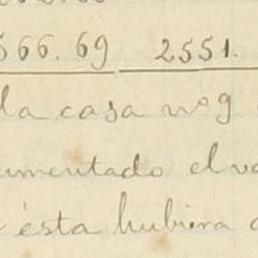 566.69 2551.
la casa nº 9
umentado el va
ésta hubiera